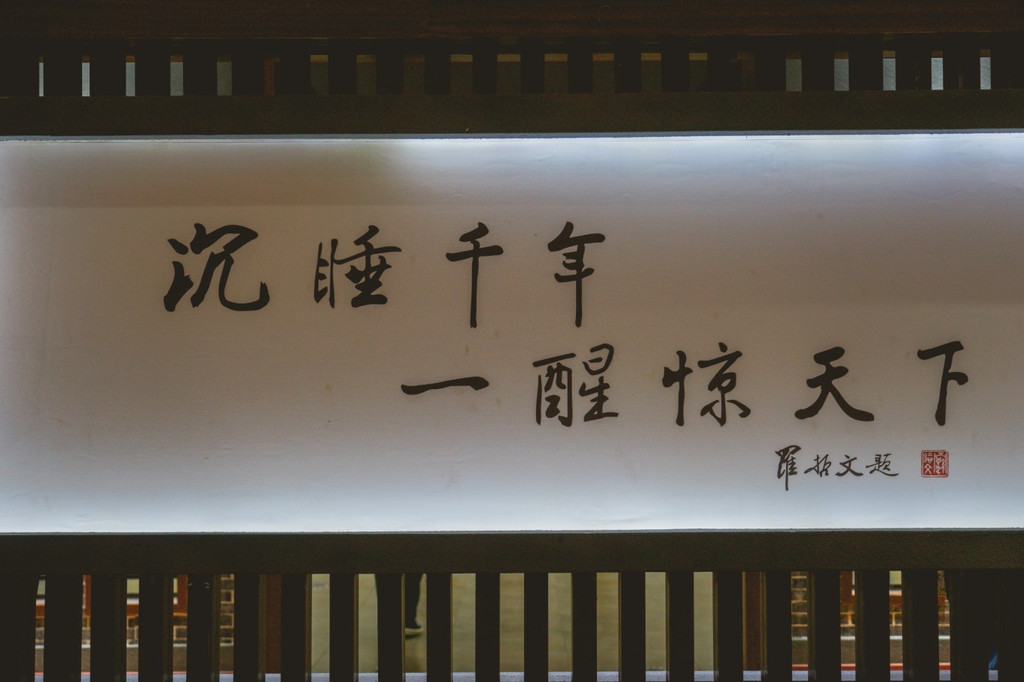 沉睡千年
一醒惊天下
羅哲文题